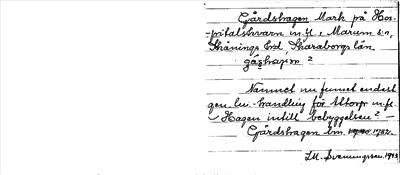 Gårdshagen Mark på Hos-
-pitalskvarn m.fl., Marum s:n,
Skånings hd, Skaraborgs län
gåshagen?
Namnet nu funnet endast
gen. lm.-handling för Utorp m.fl.
Hagen intill bebyggelsen? —
Gårdshagen lm. 1782.
I.M. Svenningsson 1973